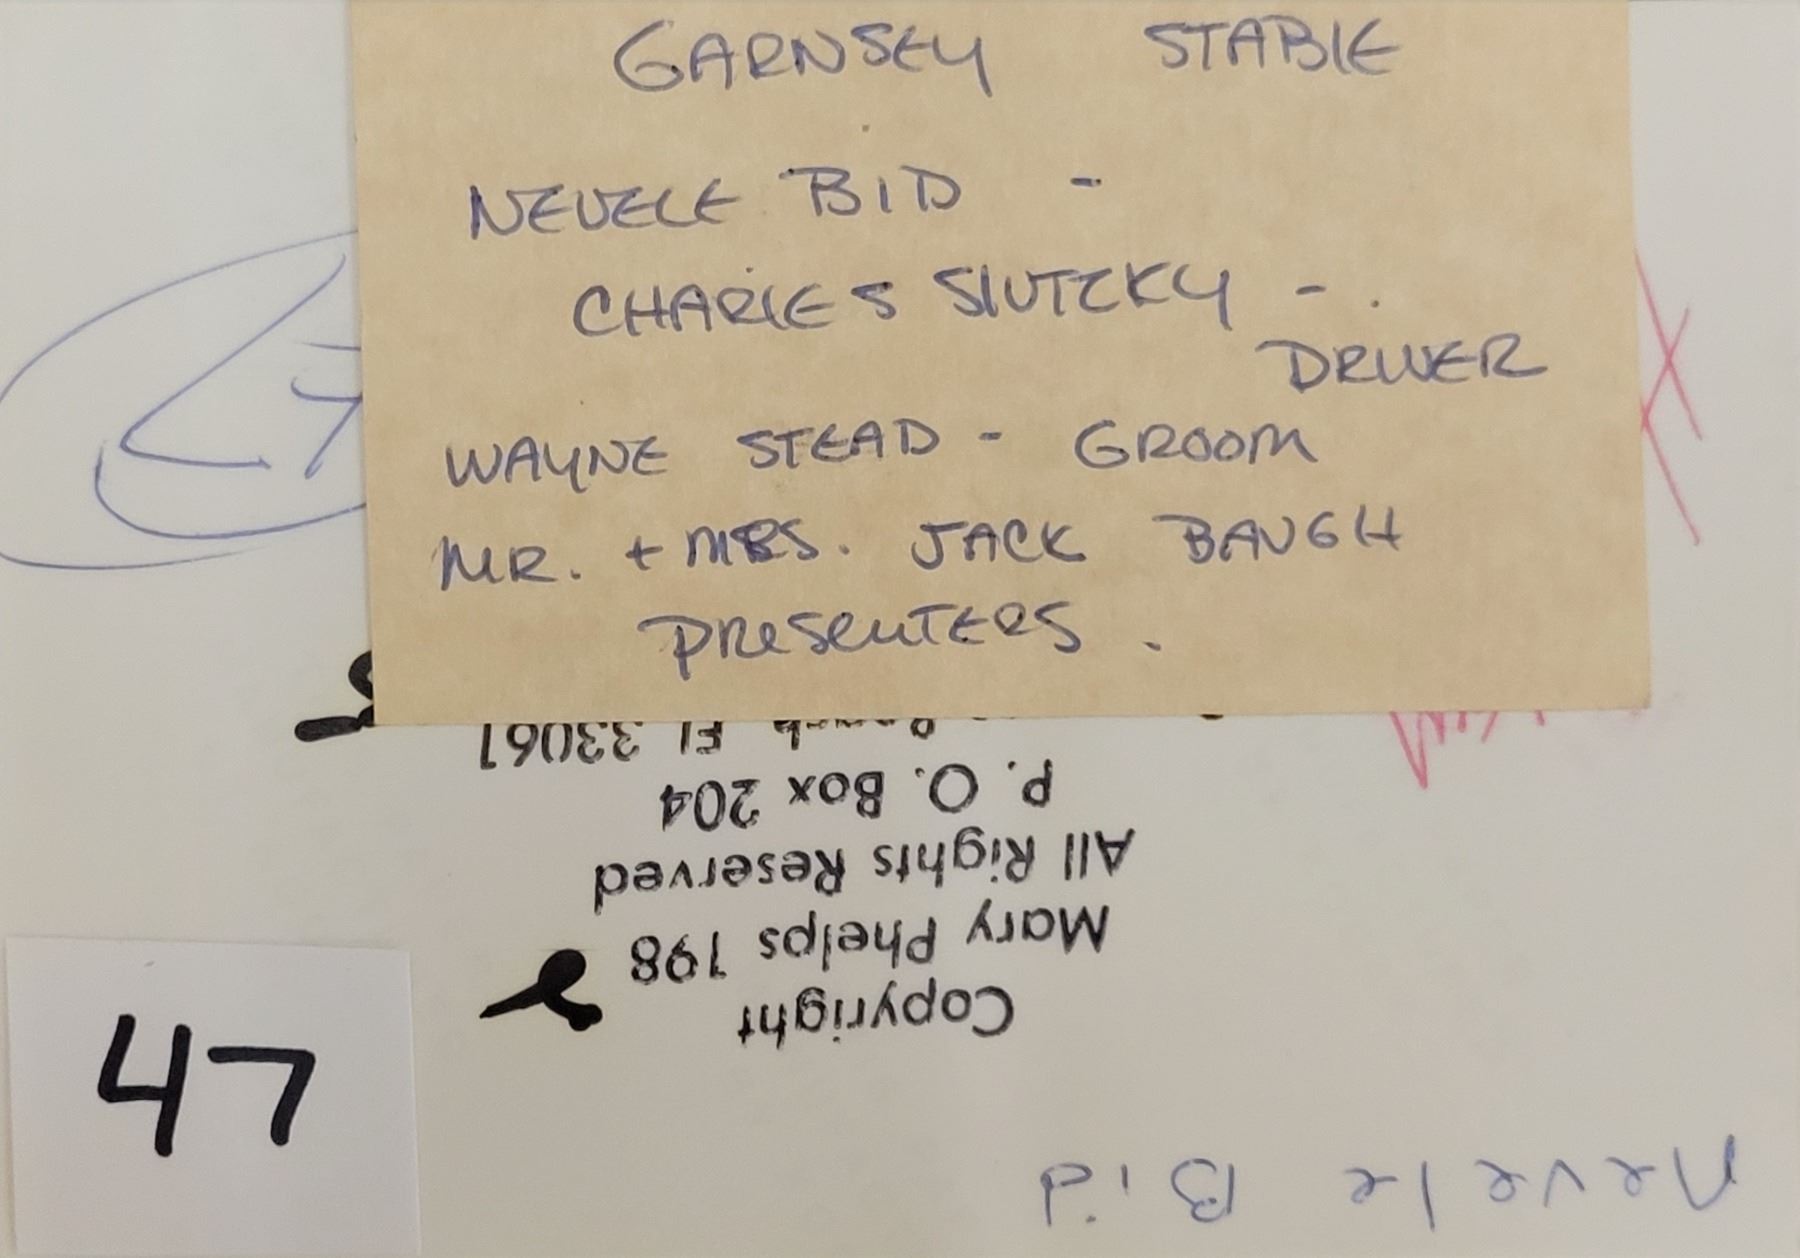 GARNSEY STABLE
NEVELE BID -
CHARLES SLUTZKY -
DRIVER
WAYNE STEAD - GROOM
MR. + MRS. JACK BAUGH
PRESENTERS.
47
Nevele Bid
Copyright
Mary Phelps 198
All Rights Reserved
P. O. Box 204
Beach Fl 33061